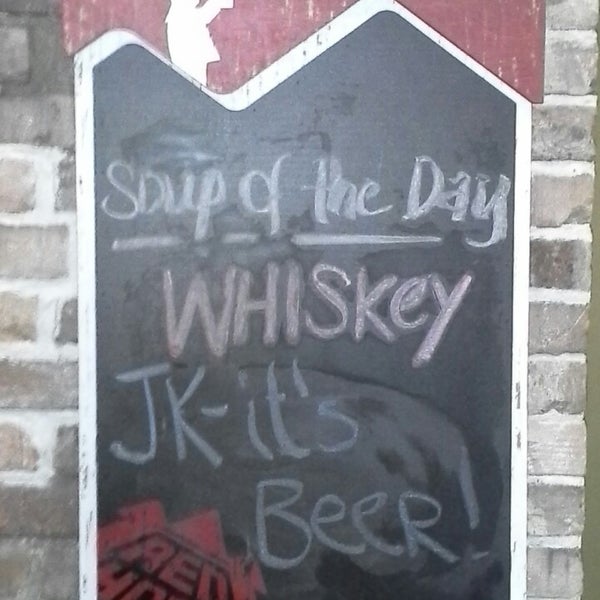 Soup of the Day
WHISKEY
JK-it's
BEER!